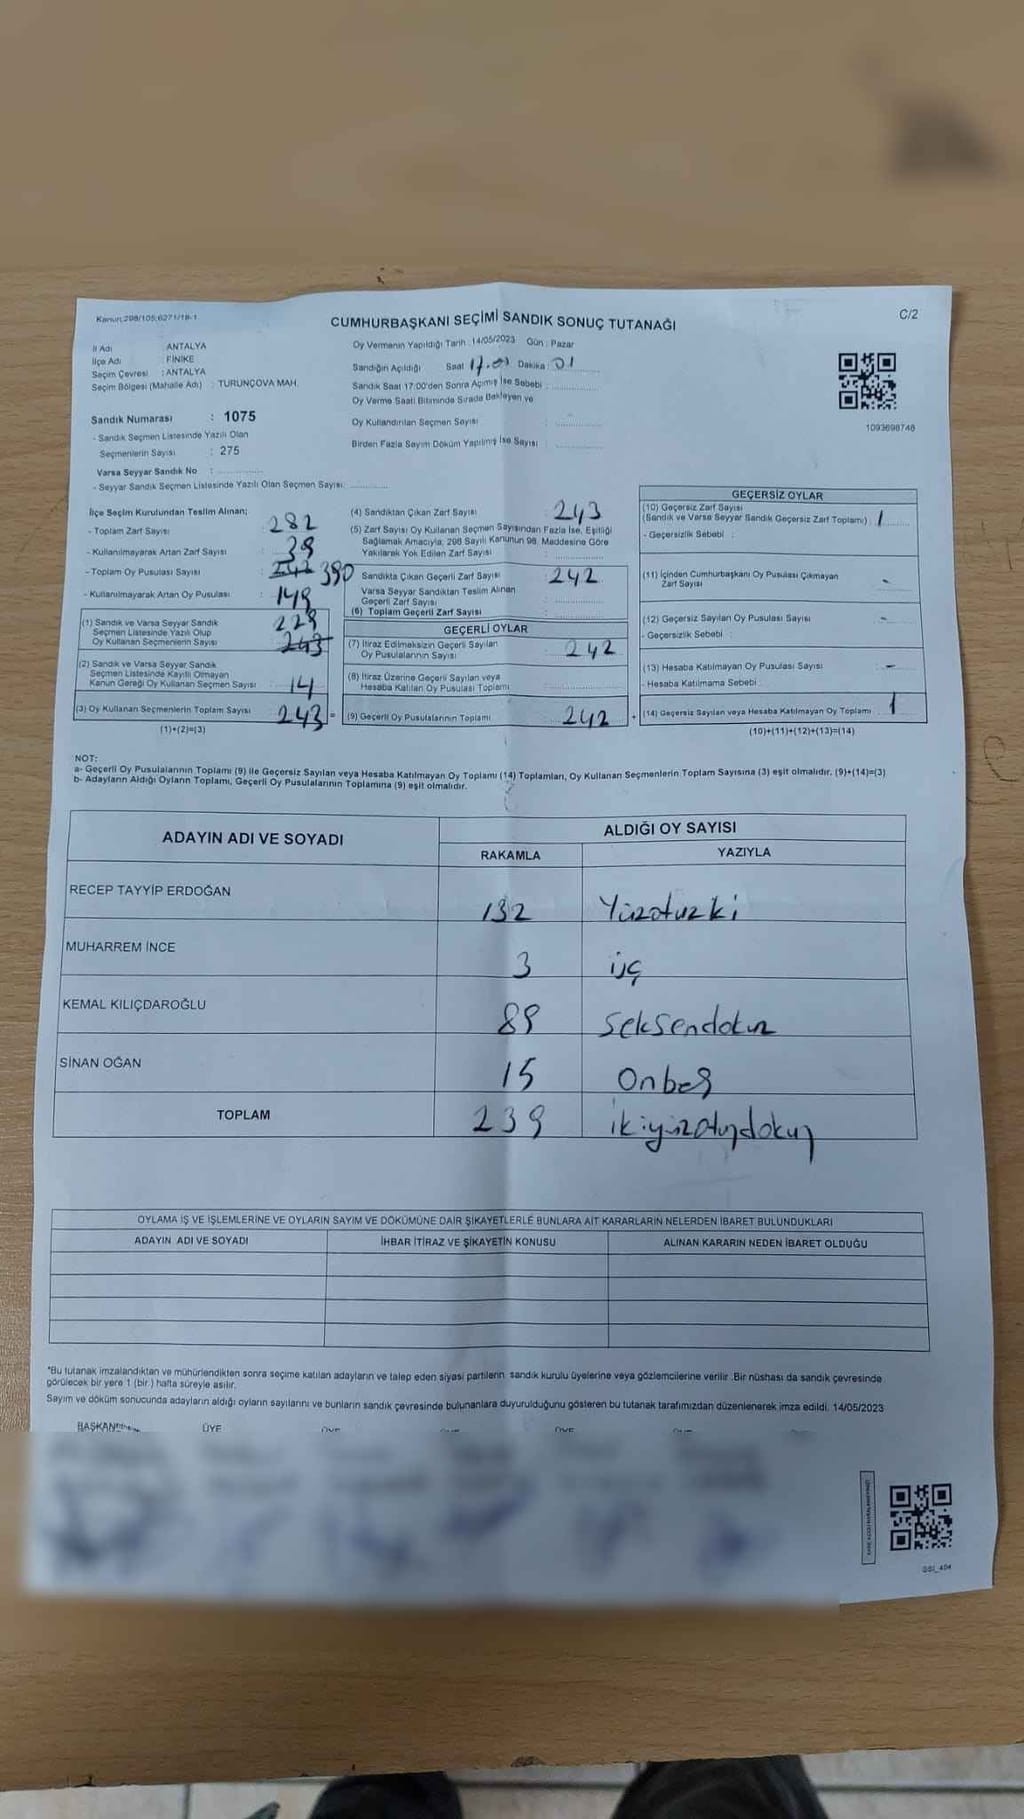 Kanun:298/105;6271/18-1
C/2
CUMHURBAŞKANI SEÇİMİ SANDIK SONUÇ TUTANAĞI
İl Adı : ANTALYA
İlçe Adı : FİNİKE
Seçim Çevresi : ANTALYA
Seçim Bölgesi (Mahalle Adı) : TURUNÇOVA MAH.
Sandık Numarası : 1075
- Sandık Seçmen Listesinde Yazılı Olan
Seçmenlerin Sayısı : 275
Varsa Seyyar Sandık No : ..............
- Seyyar Sandık Seçmen Listesinde Yazılı Olan Seçmen Sayısı: ............
Oy Vermenin Yapıldığı Tarih : 14/05/2023 Gün : Pazar
Sandığın Açıldığı Saat 17.01 Dakika : 01
Sandık Saat 17:00'den Sonra Açılmış İse Sebebi : ..............
Oy Verme Saati Bitiminde Sırada Bekleyen ve
Oy Kullandırılan Seçmen Sayısı : ..............
Birden Fazla Sayım Döküm Yapılmış İse Sayısı : ..............
1093698748
İlçe Seçim Kurulundan Teslim Alınan;
- Toplam Zarf Sayısı : 282
- Kullanılmayarak Artan Zarf Sayısı : 39
- Toplam Oy Pusulası Sayısı : 242 390
- Kullanılmayarak Artan Oy Pusulası : 148
(1) Sandık ve Varsa Seyyar Sandık
Seçmen Listesinde Yazılı Olup
Oy Kullanan Seçmenlerin Sayısı : 229 243
(2) Sandık ve Varsa Seyyar Sandık
Seçmen Listesinde Kayıtlı Olmayan
Kanun Gereği Oy Kullanan Seçmen Sayısı : 14
(3) Oy Kullanan Seçmenlerin Toplam Sayısı : 243 =
(1)+(2)=(3)
(4) Sandıktan Çıkan Zarf Sayısı : 243
(5) Zarf Sayısı Oy Kullanan Seçmen Sayısından Fazla İse, Eşitliği
Sağlamak Amacıyla; 298 Sayılı Kanunun 98. Maddesine Göre
Yakılarak Yok Edilen Zarf Sayısı : ..............
Sandıkta Çıkan Geçerli Zarf Sayısı : 242
Varsa Seyyar Sandıktan Teslim Alınan
Geçerli Zarf Sayısı : ..............
(6) Toplam Geçerli Zarf Sayısı : ..............
GEÇERLİ OYLAR
(7) İtiraz Edilmeksizin Geçerli Sayılan
Oy Pusulalarının Sayısı : 242
(8) İtiraz Üzerine Geçerli Sayılan veya
Hesaba Katılan Oy Pusulası Toplamı : ..............
(9) Geçerli Oy Pusulalarının Toplamı : 242 +
GEÇERSİZ OYLAR
(10) Geçersiz Zarf Sayısı
(Sandık ve Varsa Seyyar Sandık Geçersiz Zarf Toplamı) : 1
- Geçersizlik Sebebi :
(11) İçinden Cumhurbaşkanı Oy Pusulası Çıkmayan
Zarf Sayısı : -
(12) Geçersiz Sayılan Oy Pusulası Sayısı : -
- Geçersizlik Sebebi :
(13) Hesaba Katılmayan Oy Pusulası Sayısı : -
- Hesaba Katılmama Sebebi :
(14) Geçersiz Sayılan veya Hesaba Katılmayan Oy Toplamı : 1
(10)+(11)+(12)+(13)=(14)
NOT:
a- Geçerli Oy Pusulalarının Toplamı (9) ile Geçersiz Sayılan veya Hesaba Katılmayan Oy Toplamı (14) Toplamları, Oy Kullanan Seçmenlerin Toplam Sayısına (3) eşit olmalıdır. (9)+(14)=(3)
b- Adayların Aldığı Oyların Toplamı, Geçerli Oy Pusulalarının Toplamına (9) eşit olmalıdır.
ADAYIN ADI VE SOYADI
ALDIĞI OY SAYISI
RAKAMLA YAZIYLA
RECEP TAYYİP ERDOĞAN 132 Yüzotuzki
MUHARREM İNCE 3 üç
KEMAL KILIÇDAROĞLU 89 Seksendokuz
SİNAN OĞAN 15 Onbeş
TOPLAM 239 ikiyüzotuzdokuz
OYLAMA İŞ VE İŞLEMLERİNE VE OYLARIN SAYIM VE DÖKÜMÜNE DAİR ŞİKAYETLERLE BUNLARA AİT KARARLARIN NELERDEN İBARET BULUNDUKLARI
ADAYIN ADI VE SOYADI İHBAR İTİRAZ VE ŞİKAYETİN KONUSU ALINAN KARARIN NEDEN İBARET OLDUĞU
*Bu tutanak imzalandıktan ve mühürlendikten sonra seçime katılan adayların ve talep eden siyasi partilerin sandık kurulu üyelerine veya gözlemcilerine verilir. Bir nüshası da sandık çevresinde
görülecek bir yere 1 (bir.) hafta süreyle asılır.
Sayım ve döküm sonucunda adayların aldığı oyların sayılarını ve bunların sandık çevresinde bulunanlara duyurulduğunu gösteren bu tutanak tarafımızdan düzenlenerek imza edildi. 14/05/2023
BAŞKAN ÜYE ÜYE ÜYE ÜYE